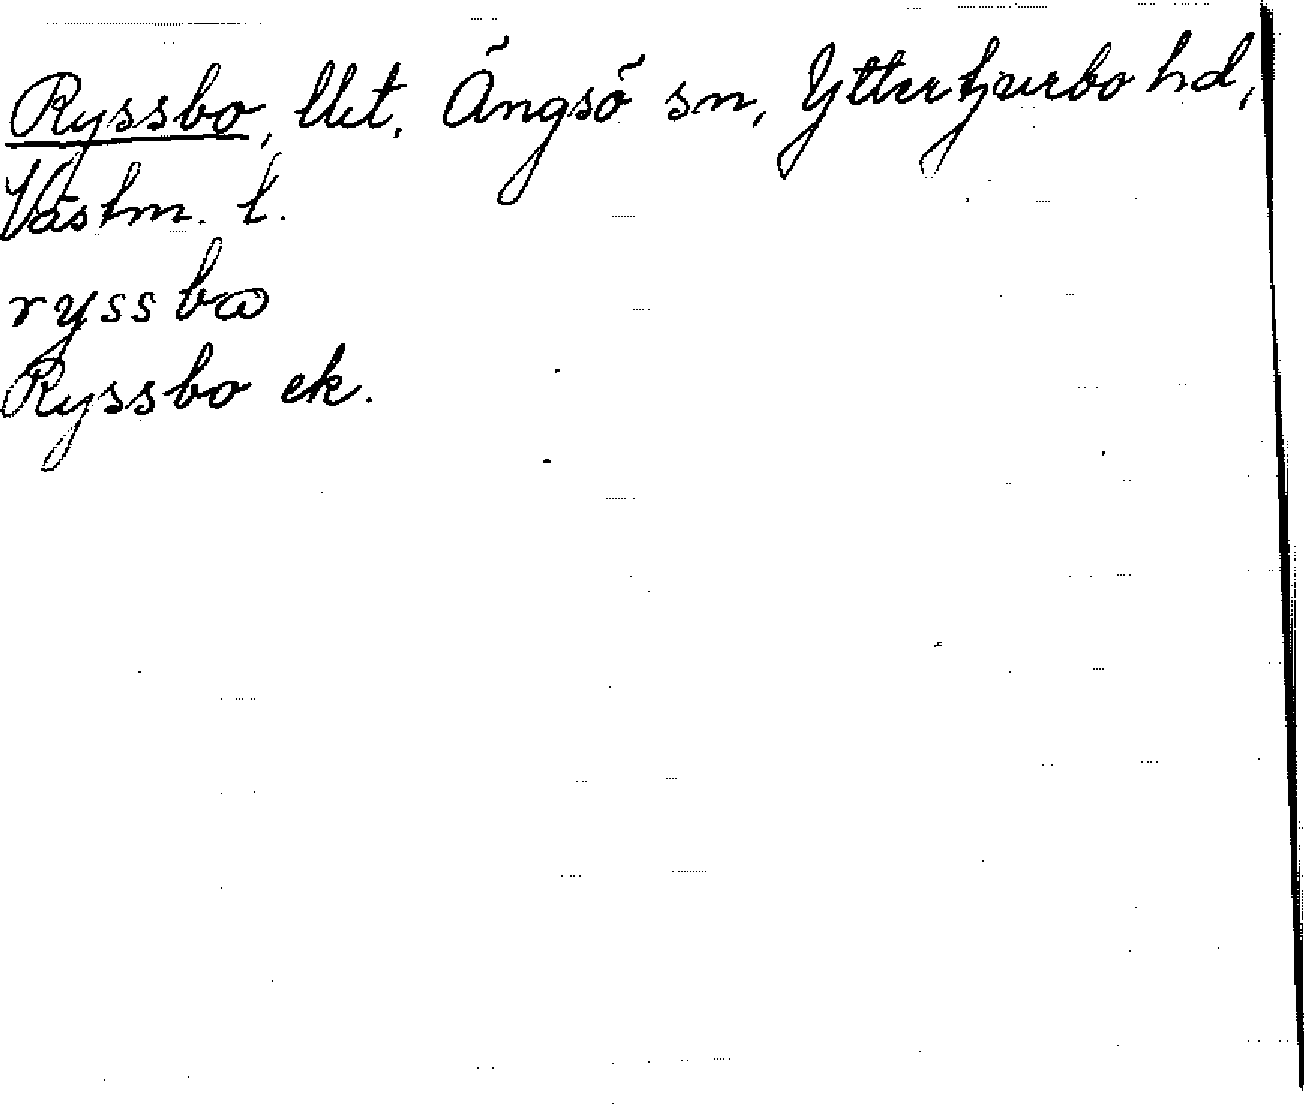 Ryssbo, llet. Ängsö sn, Ytterhjurbo hd,
Västm. l.
ryssbω
Ryssbo ek.